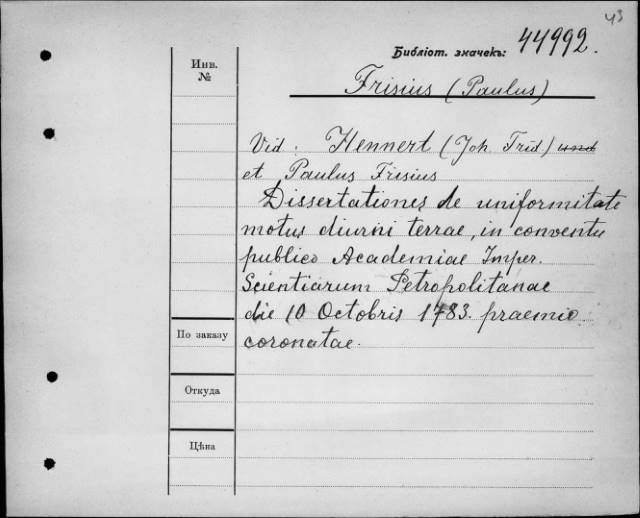 43
Библіот. значекъ: 44992.
Инв.
№
Frisius (Paulus)
Vid: Hennert (Joh. Frid) und
et Paulus Frisius
Dissertationes de uniformitate
motus diurni terrae, in conventu
publico Academiae Imper.
Scientiarum Petropolitanae
die 10 Octobris 1783. praemio
По заказу
coronatae.
Откуда
Цѣна